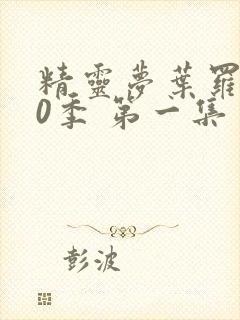 精靈夢葉羅
0季 第一集
彭波